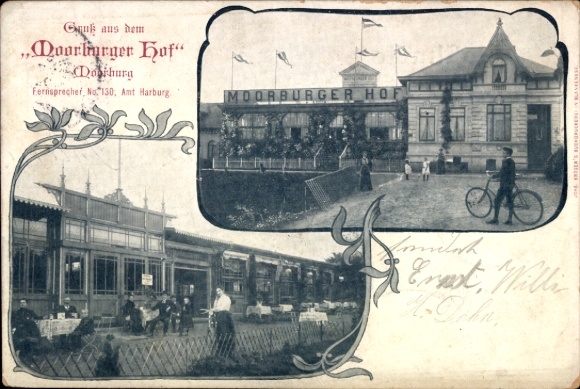 Gruß aus dem
„Moorburger Hof“
Moorburg
Fernsprecher No. 130, Amt Harburg.
MOORBURGER HOF
Ernst, Willi